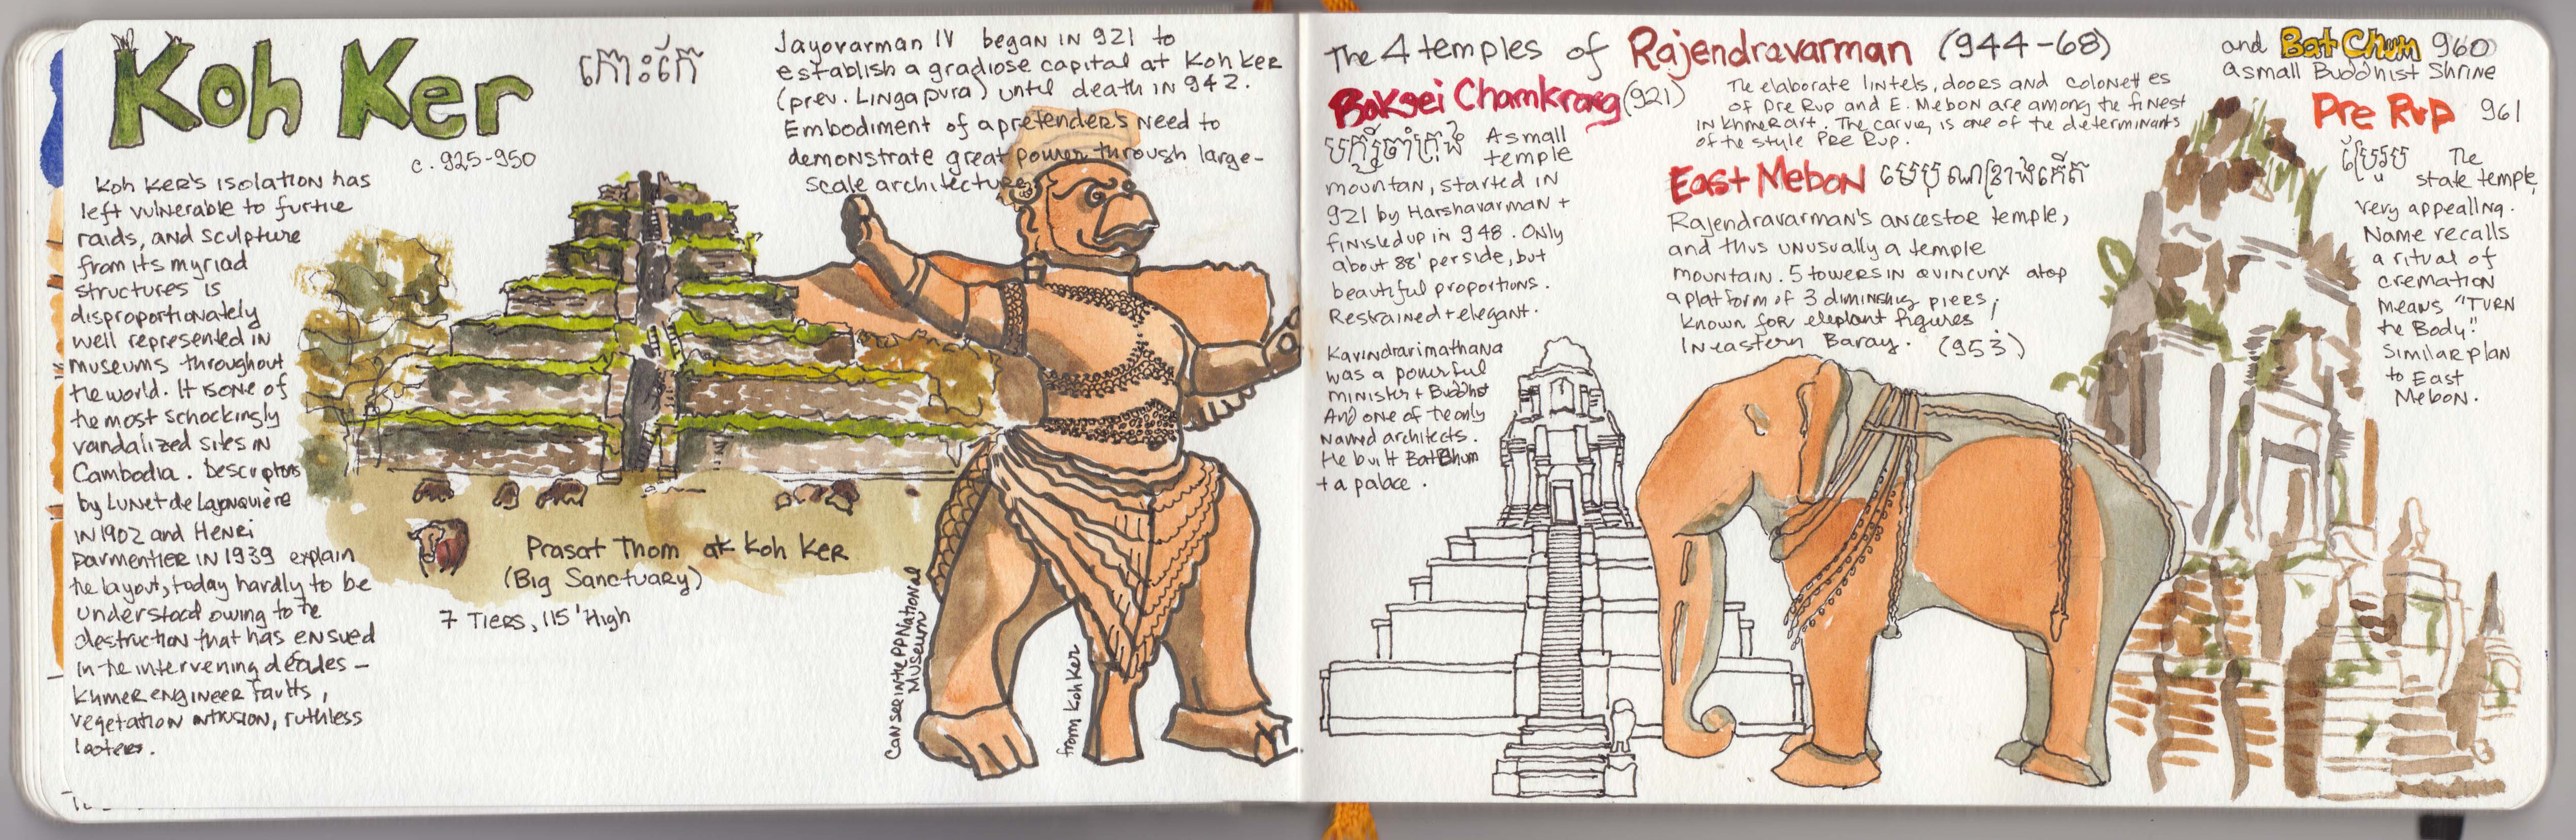 Koh Ker
កោះកេរ
c. 925-950
Koh Ker's isolation has
left vulnerable to furtive
raids, and sculpture
from its myriad
structures is
disproportionately
well represented in
museums throughout
the world. It is one of
the most schockingly
vandalized sites in
Cambodia. Descriptons
by Lunet de Lajonquière
in 1902 and Henri
Parmentier in 1939 explain
the layout, today hardly to be
understood owing to the
destruction that has ensued
in the intervening decades –
Khmer engineer faults,
vegetation intrusion, ruthless
looters.
Jayavarman IV began in 921 to
establish a gradiose capital at Koh Ker
(prev. Lingapura) until death in 942.
Embodiment of a pretender's need to
demonstrate great power through large-
scale architecture
Prasat Thom at Koh Ker
(Big Sanctuary)
7 Tiers, 115' High
Can see in the PP National
Museum
from Koh Ker
The 4 temples of Rajendravarman (944-68)
Baksei Chamkrong (921)
បក្សីចាំក្រុង
A small
temple
mountan, started in
921 by Harshavarman +
finished up in 948. Only
about 88' per side, but
beautiful proportions.
Restrained + elegant.
Kavindrarimathana
was a powerful
minister + Buddhist
And one of the only
named architects.
He built Bat Chum
+ a palace.
The elaborate lintels, doors and colonettes
of Pre Rup and E. Mebon are among the finest
in Khmer art. The carving is one of the determinants
of the style Pre Rup.
East Mebon មេបុណ្យខាងកើត
Rajendravarman's ancestor temple,
and thus unusually a temple
mountain. 5 towers in quincunx atop
a platform of 3 diminshing piers;
known for elephant figures!
In eastern Baray. (953)
and Bat Chum 960
a small Buddhist Shrine
Pre Rup 961
ប្រែរូប
The
state temple,
very appealing.
Name recalls
a ritual of
cremation
means "TURN
the Body".
Similar plan
to East
Mebon.